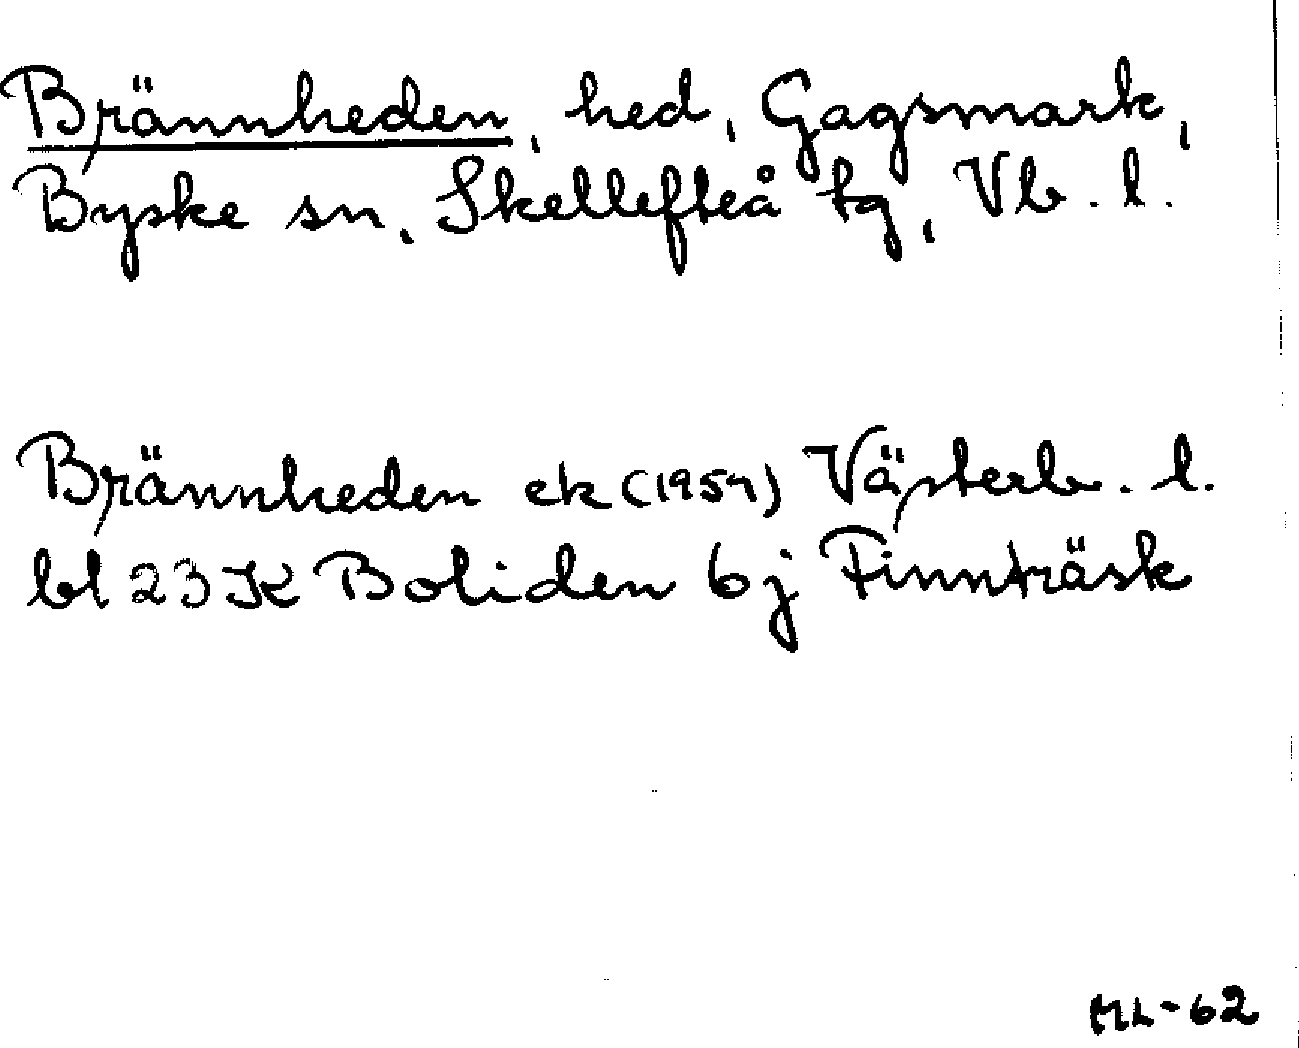 Brännheden, hed, Gagsmark,
Byske sn, Skellefteå tg, Vb. l.
Brännheden ek (1959) Västerb. l.
bl 23 K Boliden 6 j Finnträsk
ML-62